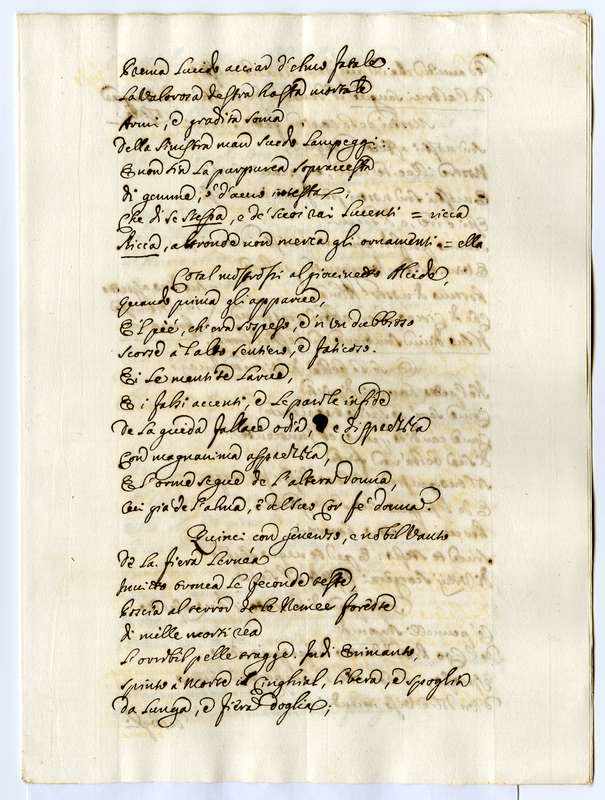 Prema lucido acciar d'elmo fatale.
La valorosa destra hasta mortale
Armi, e gradita soma
della sinistra man scudo lampeggi:
E non sia la purpurea sopravesta
di gemme, e d'auro intesta;
che di se stessa, e de' suoi rai lucenti = ricca
Ricca, altronde non merca gli ornamenti = ella
Cotal mostrossi al giovinetto Alcide,
quando prima gli apparve,
E 'l piè, ch'era sospeso, e 'n un dubbioso
scorse à l'alto sentiero, e faticoso.
Ei le mentite larve,
E i falsi accenti, e le parole infide
de la guida fallace odia, e dispretta
con magnanima
E l'orme segue de l'altera donna,
cui già de l'alma, e del suo cor fè donna.
Quinci con generoso, e nobil vanto
de la fiera Lernéa
Invitto tronca le feconde teste,
Poscia al terror de le Nemee foreste
di mille morti rea
L'orribil pelle tragge. Indi Erimanto,
spinto à morte il Cinghial, libera, e spoglia
da lunga, e fiera doglia;